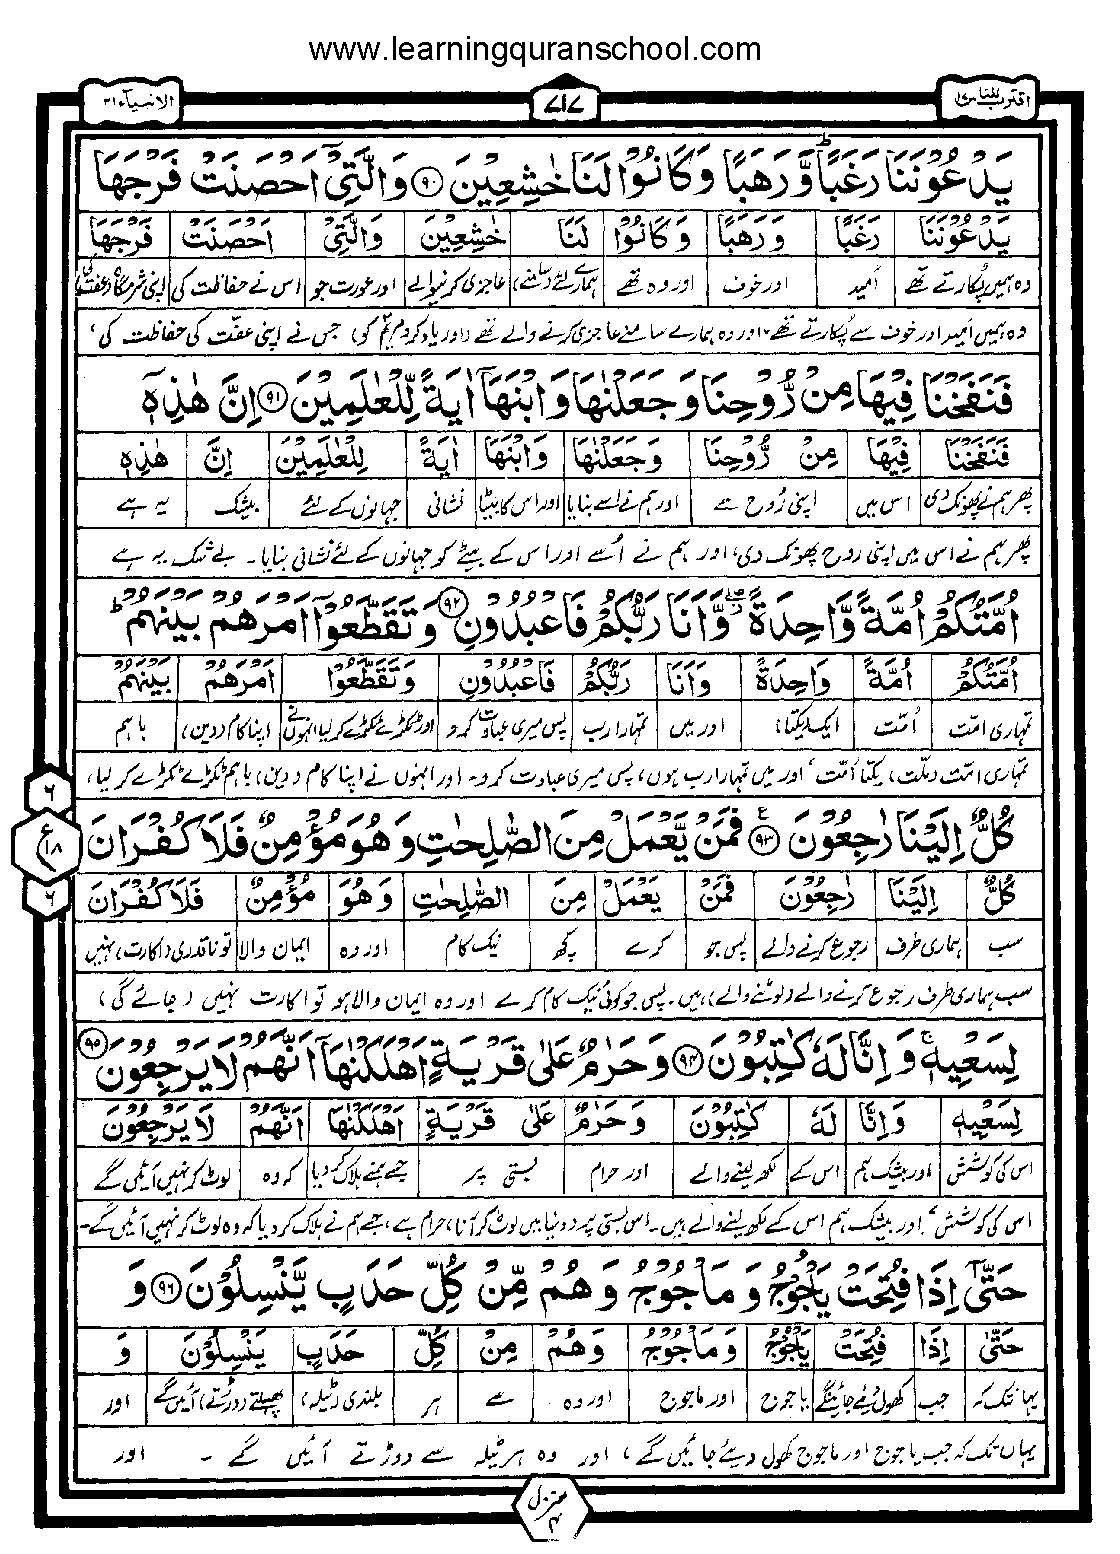 www.learningquranschool.com
اقترب للناس ۱۷
۷۱۷
الانبیاء ۲۱
يَدْعُوْنَنَا رَغَبًا وَّرَهَبًا ؕ وَكَانُوْا لَنَا خٰشِعِيْنَ ۹۰ وَالَّتِيْٓ اَحْصَنَتْ فَرْجَهَا
يَدْعُوْنَنَا رَغَبًا وَرَهَبًا وَكَانُوْا لَنَا خٰشِعِيْنَ وَالَّتِيْ اَحْصَنَتْ فَرْجَهَا
وہ ہمیں پکارتے تھے امید اور خوف اور وہ تھے ہمارے لئے (سامنے) عاجزی کرنیوالے اور عورت جو اس نے حفاظت کی اپنی شرمگاہ (عفت کی)
وہ ہمیں امید اور خوف سے پکارتے تھے، اور وہ ہمارے سامنے عاجزی کرنے والے تھے (اور یاد کرو مریم کی) جس نے اپنی عفّت کی حفاظت کی،
فَنَفَخْنَا فِيْهَا مِنْ رُّوْحِنَا وَجَعَلْنٰهَا وَابْنَهَآ اٰيَةً لِّلْعٰلَمِيْنَ ۹۱ اِنَّ هٰذِهٖٓ
فَنَفَخْنَا فِيْهَا مِنْ رُّوْحِنَا وَجَعَلْنٰهَا وَابْنَهَا اٰيَةً لِلْعٰلَمِيْنَ اِنَّ هٰذِهٖ
پھر ہم نے پھونک دی اس میں اپنی رُوح سے اور ہم نے اسے بنایا اور اس کا بیٹا نشانی جہانوں کے لئے بیشک یہ ہے
پھر ہم نے اس میں اپنی روح پھونک دی، اور ہم نے اُسے اور اس کے بیٹے کو جہانوں کے لئے نشانی بنایا۔ بے شک یہ ہے
اُمَّتُكُمْ اُمَّةً وَّاحِدَةً ۖ وَّاَنَا رَبُّكُمْ فَاعْبُدُوْنِ ۹۲ وَتَقَطَّعُوْٓا اَمْرَهُمْ بَيْنَهُمْ ؕ
اُمَّتُكُمْ اُمَّةً وَاحِدَةً وَاَنَا رَبُّكُمْ فَاعْبُدُوْنِ وَتَقَطَّعُوْا اَمْرَهُمْ بَيْنَهُمْ
تمہاری امّت اُمّت ایک (یکتا) اور میں تمہارا رب پس میری عبادت کرو اور ٹکڑے ٹکڑے کر لیا انہوں نے اپنا کام (دین) باہم
تمہاری امّت (ملّت) یکتا اُمّت، اور میں تمہارا رب ہوں، پس میری عبادت کرو۔ اور انہوں نے اپنا کام (دین) باہم ٹکڑے ٹکڑے کر لیا،
كُلٌّ اِلَيْنَا رٰجِعُوْنَ ۹۳ فَمَنْ يَّعْمَلْ مِنَ الصّٰلِحٰتِ وَهُوَ مُؤْمِنٌ فَلَا كُفْرَانَ
كُلٌّ اِلَيْنَا رٰجِعُوْنَ فَمَنْ يَعْمَلْ مِنَ الصّٰلِحٰتِ وَهُوَ مُؤْمِنٌ فَلَا كُفْرَانَ
سب ہماری طرف رجوع کرنے والے پس جو کرے کچھ نیک کام اور وہ ایمان والا تو ناقدری (اکارت) نہیں
سب ہماری طرف رجوع کرنے والے (لوٹنے والے) ہیں۔ پس جو کوئی نیک کام کرے اور وہ ایمان والا ہو تو اکارت نہیں (جائے گی)
لِسَعْيِهٖ ۚ وَاِنَّا لَهٗ كٰتِبُوْنَ ۹۴ وَحَرٰمٌ عَلٰى قَرْيَةٍ اَهْلَكْنٰهَآ اَنَّهُمْ لَا يَرْجِعُوْنَ ۹۵
لِسَعْيِهٖ وَاِنَّا لَهٗ كٰتِبُوْنَ وَحَرٰمٌ عَلٰى قَرْيَةٍ اَهْلَكْنٰهَا اَنَّهُمْ لَا يَرْجِعُوْنَ
اس کی کوشش اور بیشک ہم اس کے لکھ لینے والے اور حرام بستی پر جسے ہم نے ہلاک کر دیا کہ وہ لوٹ کر نہیں آئیں گے
اس کی کوشش، اور بیشک ہم اس کے لکھ لینے والے ہیں۔ اس بستی پر (دنیا میں لوٹ کر آنا) حرام ہے، جسے ہم نے ہلاک کر دیا کہ وہ لوٹ کر نہیں آئیں گے۔
حَتّٰىٓ اِذَا فُتِحَتْ يَاْجُوْجُ وَمَاْجُوْجُ وَهُمْ مِّنْ كُلِّ حَدَبٍ يَّنْسِلُوْنَ ۹۶ وَ
حَتّٰى اِذَا فُتِحَتْ يَاْجُوْجُ وَمَاْجُوْجُ وَهُمْ مِنْ كُلِّ حَدَبٍ يَنْسِلُوْنَ وَ
یہانتک کہ جب کھول دئیے جائینگے یاجوج اور ماجوج اور وہ سے ہر بلندی (ٹیلہ) پھسلتے (دوڑتے) آئیں گے اور
یہاں تک کہ جب یاجوج اور ماجوج کھول دیئے جائیں گے، اور وہ ہر ٹیلہ سے دوڑتے آئیں گے ۔ اور
۶
ع
۱۸
۶
منزل
۴